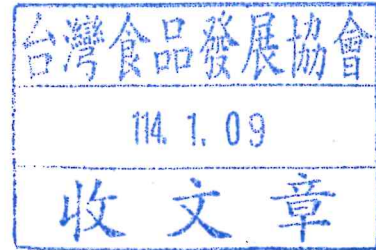 台灣食品發展協會
114. 1. 09
收文章